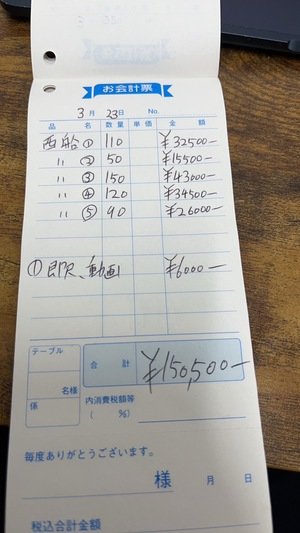 お会計票
3月23日 No.
品名 数量 単価 金額
西船① 110 ¥32500-
〃 ② 50 ¥15500-
〃 ③ 150 ¥43000-
〃 ④ 120 ¥34500-
〃 ⑤ 90 ¥26000-
① 即尺、動画 ¥6000-
テーブル
合計 ¥150,500-
名様
係
内消費税額等
( %)
毎度ありがとうございます。
様 月 日
税込合計金額